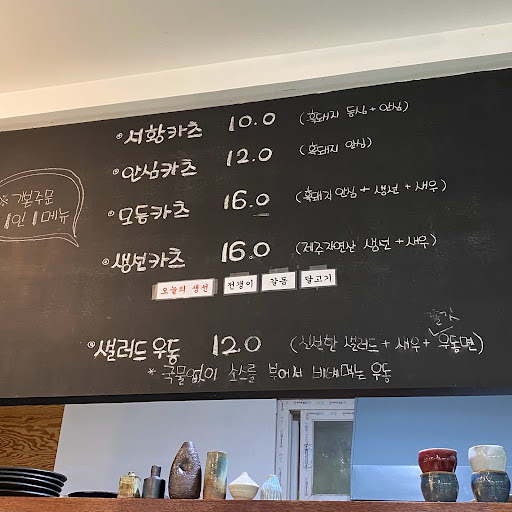 서황카츠 10.0 (흑돼지 등심 + 안심)
안심카츠 12.0 (흑돼지 안심)
※ 기본주문
1인 1메뉴
모둠카츠 16.0 (흑돼지 안심 + 생선 + 새우)
생선카츠 16.0 (제주자연산 생선 + 새우)
오늘의 생선 전갱이 갈돔 달고기
샐러드 우동 12.0 (신선한 샐러드 + 새우 + 우동면)
* 국물없이 소스를 부어서 비벼먹는 우동